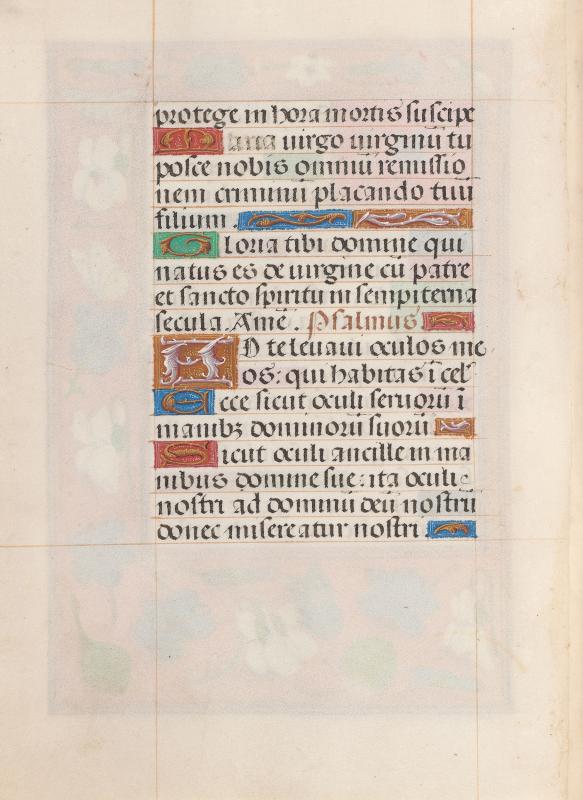 protege in hora mortis suscipe
Maria uirgo uirginū tu
posce nobis omniū remissio
nem crīminū placando tuū
filium.
Gloria tibi domine qui
natus es de uirgine cū patre
et sancto spiritu in sempiterna
secula. Amē. Psalmus
AD te leuaui oculos me
os: qui habitas ī cel
Ecce sicut oculi seruorū ī
manibꝫ dominorū suorū
Sicut oculi ancille in ma
nibus domine sue: ita oculi
nostri ad dominū deū nostrū
donec misereatur nostri.